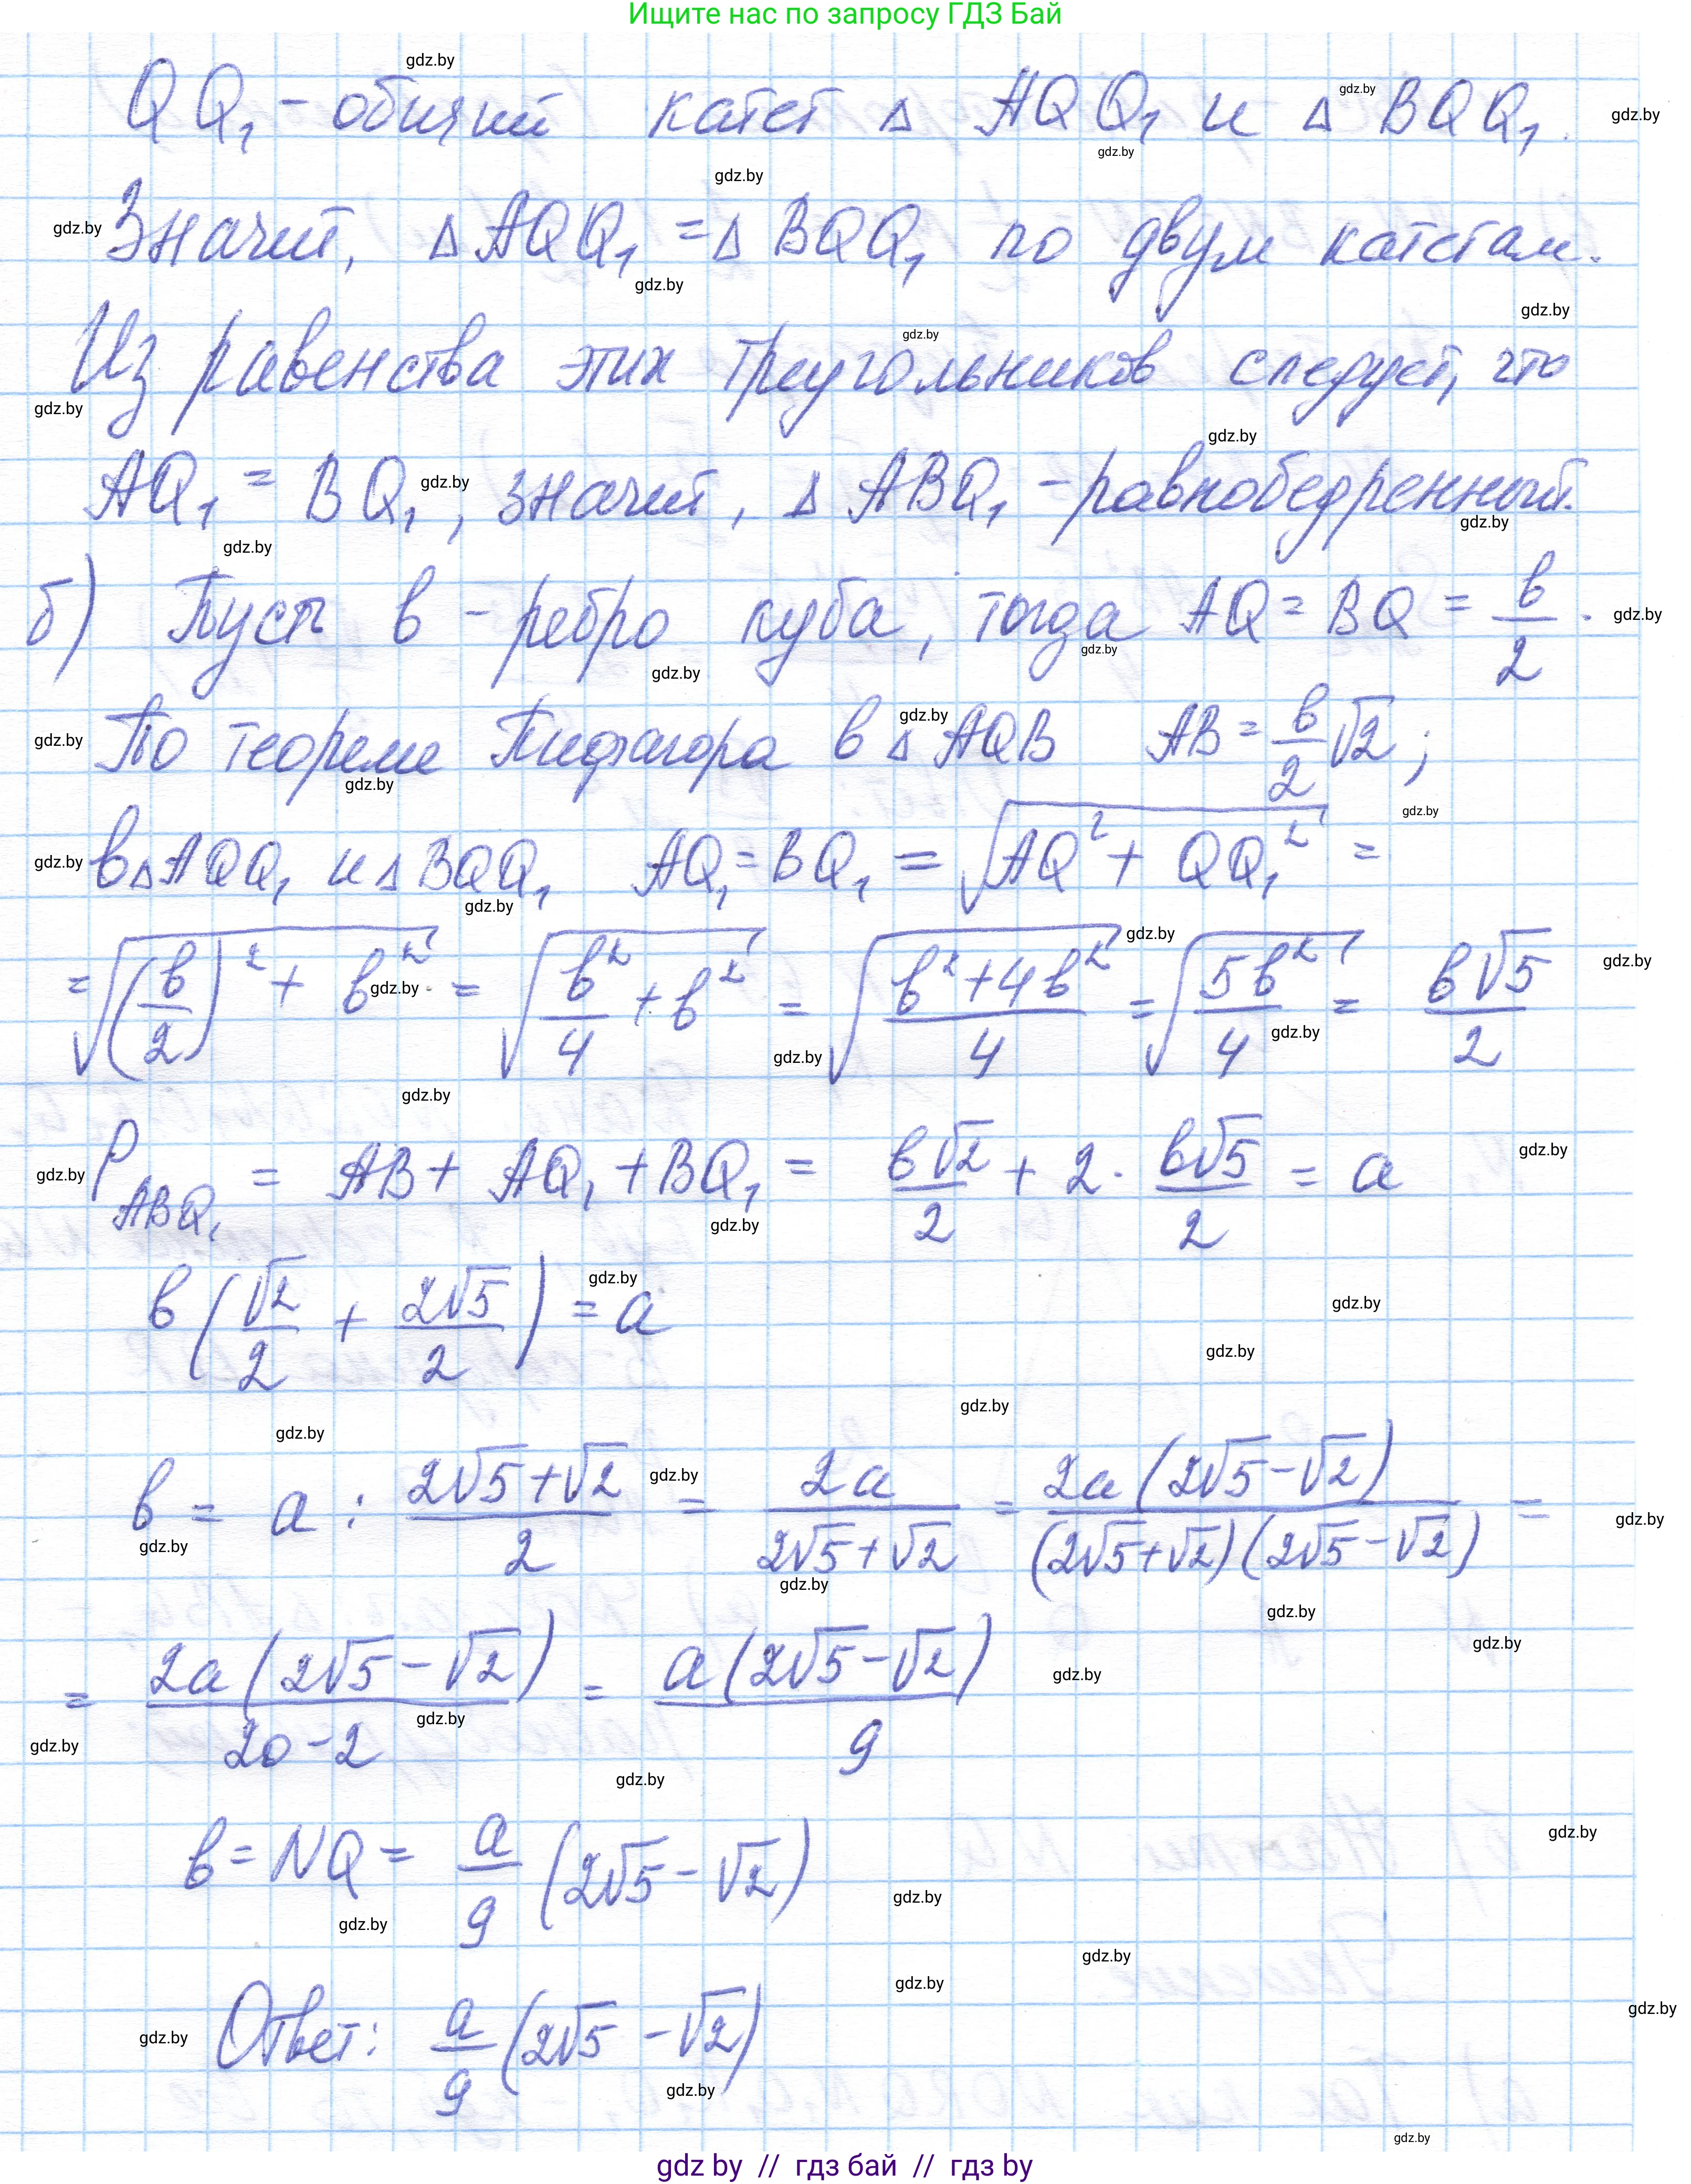 Ищите нас по запросу ГДЗ Бай
QQ₁ - общий катет △ AQQ₁ и △ BQQ₁.
Значит, △ AQQ₁ = △ BQQ₁ по двум катетам.
Из равенства этих треугольников следует, что
AQ₁ = BQ₁, значит, △ ABQ₁ - равнобедренный.
б) Пусть в - ребро куба, тогда AQ = BQ = в/2.
По теореме Пифагора в △ AQB AB = в/2 √2;
в △ AQQ₁ и △ BQQ₁ AQ₁ = BQ₁ = √(AQ² + QQ₁²) =
= √((в/2)² + в²) = √(в²/4 + в²) = √((в² + 4в²)/4) = √(5в²/4) = в√5/2
P_ABQ₁ = AB + AQ₁ + BQ₁ = в√2/2 + 2 · в√5/2 = a
в (√2/2 + 2√5/2) = a
в = a : (2√5+√2)/2 = 2a/(2√5+√2) = 2a(2√5-√2)/((2√5+√2)(2√5-√2)) =
= 2a(2√5-√2)/(20-2) = a(2√5-√2)/9
в = NQ = a/9 (2√5-√2)
Ответ: a/9 (2√5-√2)
gdz by // гдз бай // гдз by